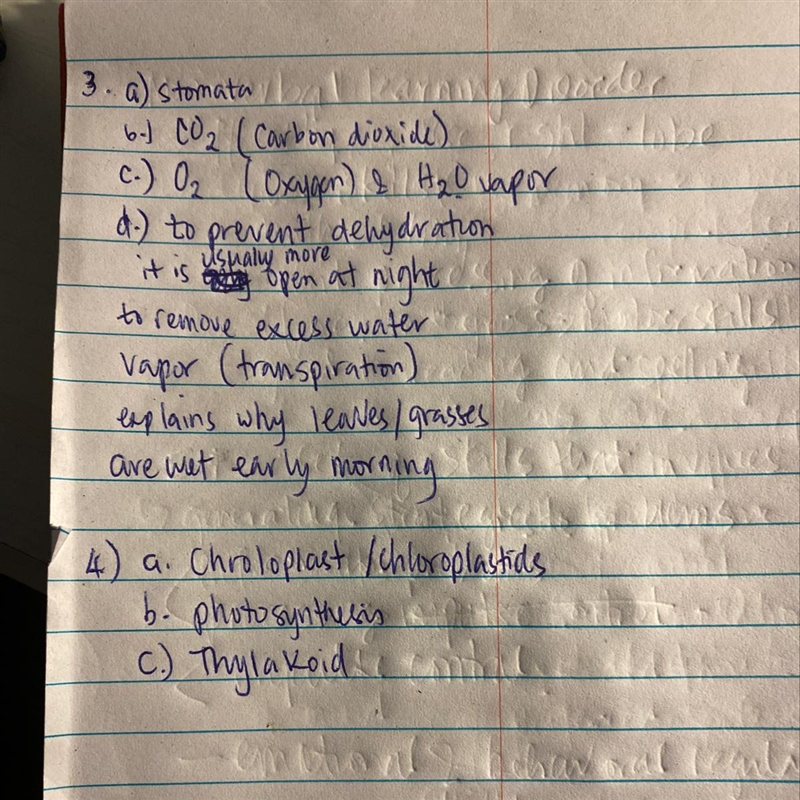 3. a) stomata
b.) CO2 (Carbon dioxide)
c.) O2 (Oxygen) & H2O vapor
d.) to prevent dehydration
it is usualy more open at night
to remove excess water
vapor (transpiration)
explains why leaves/grasses
are wet early morning
4) a. Chroloplast /chloroplastids
b. photosynthesis
C.) Thylakoid